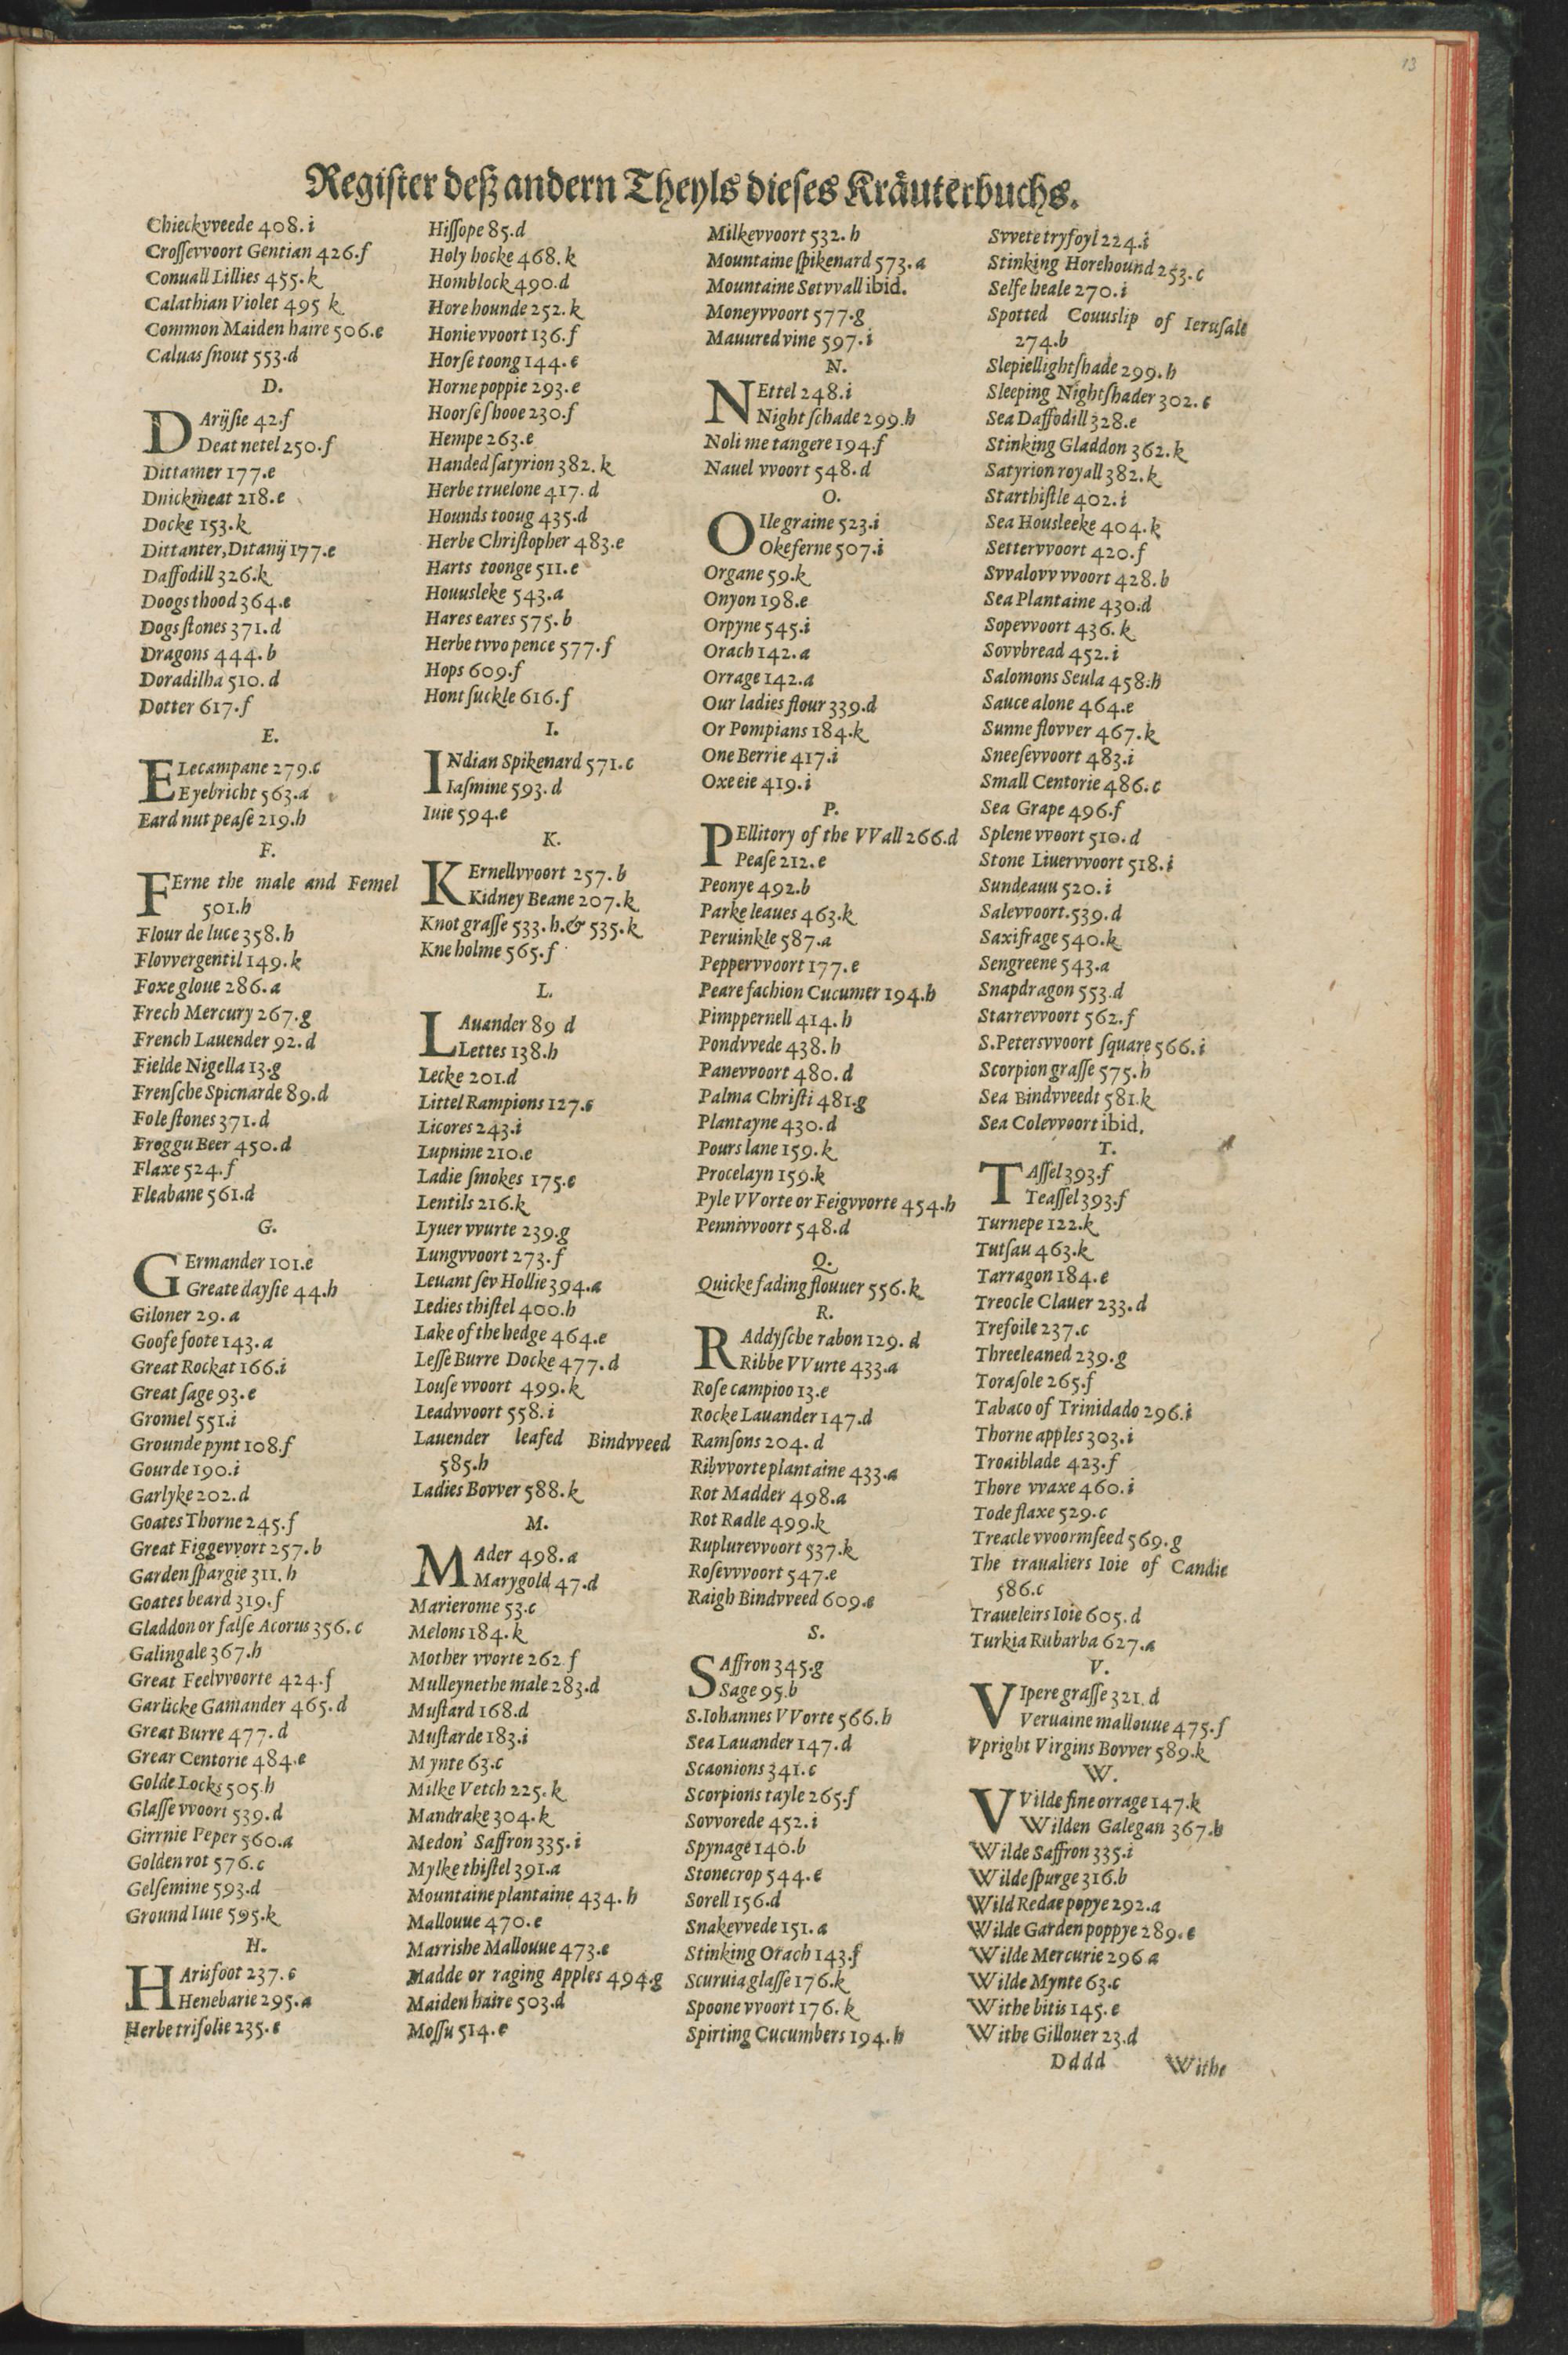 13
Regiſter deß andern Theyls dieſes Kräuterbuchs.
Chieckvveede 408. i
Croſſevvoort Gentian 426.f
Conuall Lillies 455. k
Calathian Violet 495 k
Common Maiden haire 506.e
Caluas ſnout 553.d
D.
DArijſie 42.f
Deat netel 250.f
Dittamer 177.e
Dnickmeat 218.e
Docke 153.k
Dittanter, Ditanij 177.e
Daffodill 326.k
Doogs thood 364.e
Dogs ſtones 371.d
Dragons 444.b
Doradilha 510.d
Dotter 617.f
E.
ELecampane 279.c
Eyebricht 563.a
Eard nut peaſe 219.h
F.
FErne the male and Femel
501.h
Flour de luce 358.h
Flovvergentil 149.k
Foxe gloue 286.a
Frech Mercury 267.g
French Lauender 92.d
Fielde Nigella 13.g
Frenſche Spicnarde 89.d
Fole ſtones 371.d
Froggu Beer 450.d
Flaxe 524.f
Fleabane 561.d
G.
GErmander 101.e
Greate dayſie 44.h
Giloner 29.a
Gooſe foote 143.a
Great Rockat 166.i
Great ſage 93.e
Gromel 551.i
Grounde pynt 108.f
Gourde 190.i
Garlyke 202.d
Goates Thorne 245.f
Great Figgevvort 257.b
Garden ſpargie 311.h
Goates beard 319.f
Gladdon or falſe Acorus 356.c
Galingale 367.h
Great Feelvvoorte 424.f
Garlicke Gamander 465.d
Great Burre 477.d
Grear Centorie 484.e
Golde Locks 505.h
Glaſſe vvoort 539.d
Girrnie Peper 560.a
Golden rot 576.c
Gelſemine 593.d
Ground Iuie 595.k
H.
HArisfoot 237.c
Henebarie 295.a
Herbe trifolie 235.e
Hiſſope 85.d
Holy hocke 468.k
Homblock 490.d
Hore hounde 252.k
Honie vvoort 136.f
Horſe toong 144.e
Horne poppie 293.e
Hoorſe ſhooe 230.f
Hempe 263.e
Handed ſatyrion 382.k
Herbe truelone 417.d
Hounds tooug 435.d
Herbe Chriſtopher 483.e
Harts toonge 511.e
Houusleke 543.a
Hares eares 575.b
Herbe tvvo pence 577.f
Hops 609.f
Hont ſuckle 616.f
I.
INdian Spikenard 571.c
Iaſmine 593.d
Iuie 594.e
K.
KErnellvvoort 257.b
Kidney Beane 207.k
Knot graſſe 533.h. & 535.k
Kne holme 565.f
L.
LAuander 89 d
Lettes 138.h
Lecke 201.d
Littel Rampions 127.e
Licores 243.i
Lupnine 210.e
Ladie ſmokes 175.e
Lentils 216.k
Lyuer vvurte 239.g
Lungvvoort 273.f
Leuant ſev Hollie 394.a
Ledies thiſtel 400.h
Lake of the hedge 464.e
Leſſe Burre Docke 477.d
Louſe vvoort 499.k
Leadvvoort 558.i
Lauender leafed Bindvveed
585.h
Ladies Bovver 588.k
M.
MAder 498.a
Marygold 47.d
Marierome 53.c
Melons 184.k
Mother vvorte 262 f
Mulleyne the male 283.d
Muſtard 168.d
Muſtarde 183.i
Mynte 63.c
Milke Vetch 225.k
Mandrake 304.k
Medon' Saffron 335.i
Mylke thiſtel 391.a
Mountaine plantaine 434.h
Mallouue 470.e
Marrishe Mallouue 473.e
Madde or raging Apples 494.g
Maiden haire 503.d
Moſſu 514.e
Milkevvoort 532.h
Mountaine ſpikenard 573.a
Mountaine Setvvall ibid.
Moneyvvoort 577.g
Mauured vine 597.i
N.
NEttel 248.i
Night ſchade 299.h
Noli me tangere 194.f
Nauel vvoort 548.d
O.
OIle graine 523.i
Okeferne 507.i
Organe 59.k
Onyon 198.e
Orpyne 545.i
Orach 142.a
Orrage 142.a
Our ladies flour 339.d
Or Pompians 184.k
One Berrie 417.i
Oxe eie 419.i
P.
PEllitory of the VVall 266.d
Peaſe 212.e
Peonye 492.b
Parke leaues 463.k
Peruinkle 587.a
Peppervvoort 177.e
Peare fachion Cucumer 194.h
Pimppernell 414.h
Pondvvede 438.h
Panevvoort 480.d
Palma Chriſti 481.g
Plantayne 430.d
Pours lane 159.k
Procelayn 159.k
Pyle VVorte or Feigvvorte 454.h
Pennivvoort 548.d
Q.
Quicke fading flouuer 556.k
R.
RAddyſche rabon 129.d
Ribbe VVurte 433.a
Roſe campioo 13.e
Rocke Lauander 147.d
Ramſons 204.d
Ribvvorte plantaine 433.a
Rot Madder 498.a
Rot Radle 499.k
Ruplurevvoort 537.k
Roſevvvoort 547.e
Raigh Bindvveed 609.e
S.
SAffron 345.g
Sage 95.b
S. Iohannes VVorte 566.h
Sea Lauander 147.d
Scaonions 341.c
Scorpions tayle 265.f
Sovvorede 452.i
Spynage 140.b
Stonecrop 544.e
Sorell 156.d
Snakevvede 151.a
Stinking Orach 143.f
Scuruia glaſſe 176.k
Spoone vvoort 176.k
Spirting Cucumbers 194.h
Svvete tryfoyl 224.i
Stinking Horehound 253.c
Selfe heale 270.i
Spotted Couuslip of Ieruſale
274.b
Slepiellightſhade 299.h
Sleeping Nightſhader 302.e
Sea Daffodill 328.e
Stinking Gladdon 362.k
Satyrion royall 382.k
Starthiſtle 402.i
Sea Housleeke 404.k
Settervvoort 420.f
Svvalovv vvoort 428.b
Sea Plantaine 430.d
Sopevvoort 436.k
Sovvbread 452.i
Salomons Seula 458.h
Sauce alone 464.e
Sunne flovver 467.k
Sneeſevvoort 483.i
Small Centorie 486.c
Sea Grape 496.f
Splene vvoort 510.d
Stone Liuervvoort 518.i
Sundeauu 520.i
Salevvoort. 539.d
Saxifrage 540.k
Sengreene 543.a
Snapdragon 553.d
Starrevvoort 562.f
S. Petersvvoort ſquare 566.i
Scorpion graſſe 575.h
Sea Bindvveedt 581.k
Sea Colevvoort ibid.
T.
TAſſel 393.f
Teaſſel 393.f
Turnepe 122.k
Tutſau 463.k
Tarragon 184.e
Treocle Clauer 233.d
Trefoile 237.c
Threeleaned 239.g
Toraſole 265.f
Tabaco of Trinidado 296.i
Thorne apples 303.i
Troaiblade 423.f
Thore vvaxe 460.i
Tode flaxe 529.c
Treacle vvoormſeed 569.g
The traualiers Ioie of Candie
586.c
Traueleirs Ioie 605.d
Turkia Rubarba 627.a
V.
VIpere graſſe 321.d
Veruaine mallouue 475.f
Vpright Virgins Bovver 589.k
W.
VVilde fine orrage 147.k
Wilden Galegan 367.h
Wilde Saffron 335.i
Wilde ſpurge 316.b
Wild Redae popye 292.a
Wilde Garden poppye 289.e
Wilde Mercurie 296 a
Wilde Mynte 63.c
Withe bitis 145.e
Withe Gillouer 23.d
Dddd Withe